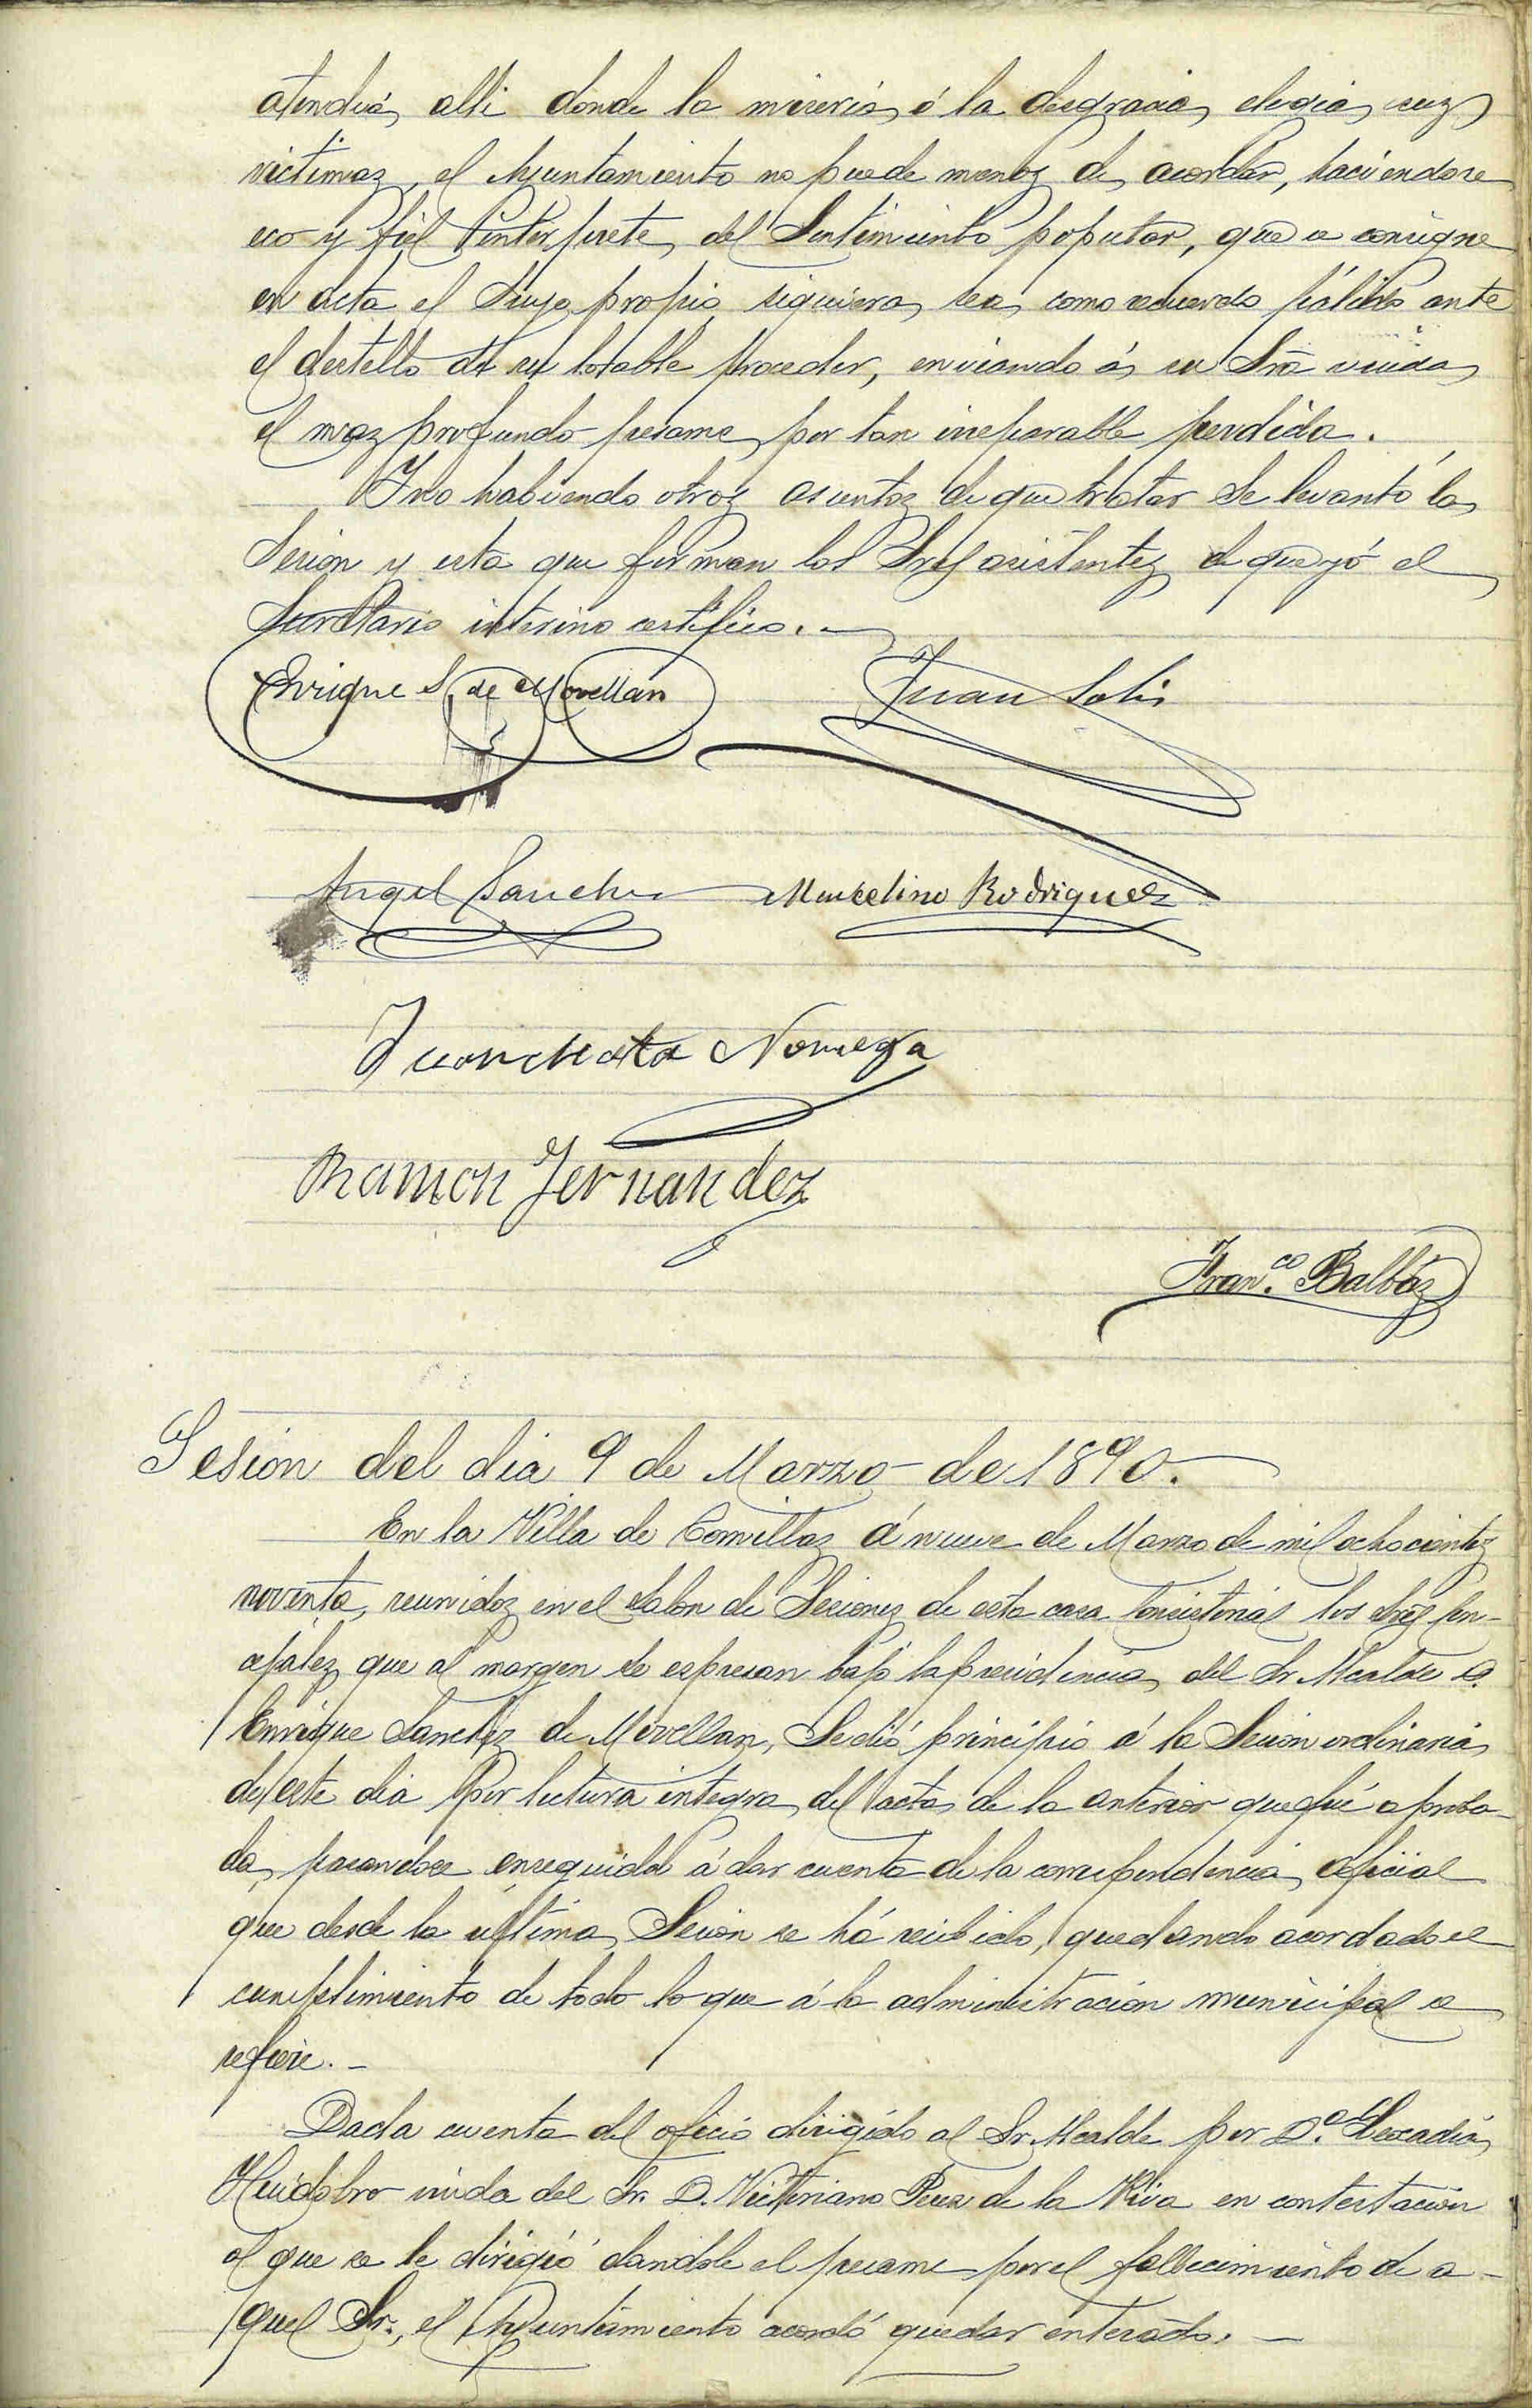 atendia, alli donde la miseria ó la desgracia elegia sus
victimas, el Ayuntamiento no puede menos de acordar, haciendose
eco y fiel interprete, del Sentimiento popular, que se consigne
en acta el Suyo propio, siquiera sea como recuerdo pálido ante
el destello de su notable proceder, enviando á su Srã viuda
el mas profundo pesame, por tan ireparable perdida.
Y no habiendo otros asuntos de que tratar Se levantó la
Sesion y esta que firman los Sres asistentes, de que yó el
Secretario interino certifico. —
Enrique S. de Movellán Juan Solis
Angel Sanchez Marcelino Rodriguez
Juan Mata Noriega
Ramon Fernandez
Fran.co Balbás
Sesion del dia 9 de Marzo de 1890.
En la Villa de Comillas á nueve de Marzo de mil ochocientos
noventa, reunidos en el Salon de Sesiones de esta casa Consistorial los Sres Con-
cejales, que al margen se espresan bajo la presidencia del Sr Alcalde D.
Enrique Sanchez de Movellan, Se dió principio á la Sesion ordinaria
de este dia por lectura integra del acta de la anterior que fué aproba-
da, pasandose enseguida á dar cuenta de la correspondencia oficial
que desde la ultima Sesion se há recibido, quedando acordado el
cumplimiento de todo lo que á la administracion municipal se
refiere. —
Dada cuenta del oficio dirigido al Sr. Alcalde por D.a Leocadia
Huidobro viuda del Sr. D. Victoriano Perez de la Riva en contestacion
al que se le dirigió dandole el pesame por el fallecimiento de a-
quel Sr., el Ayuntamiento acordó quedar enterado. —